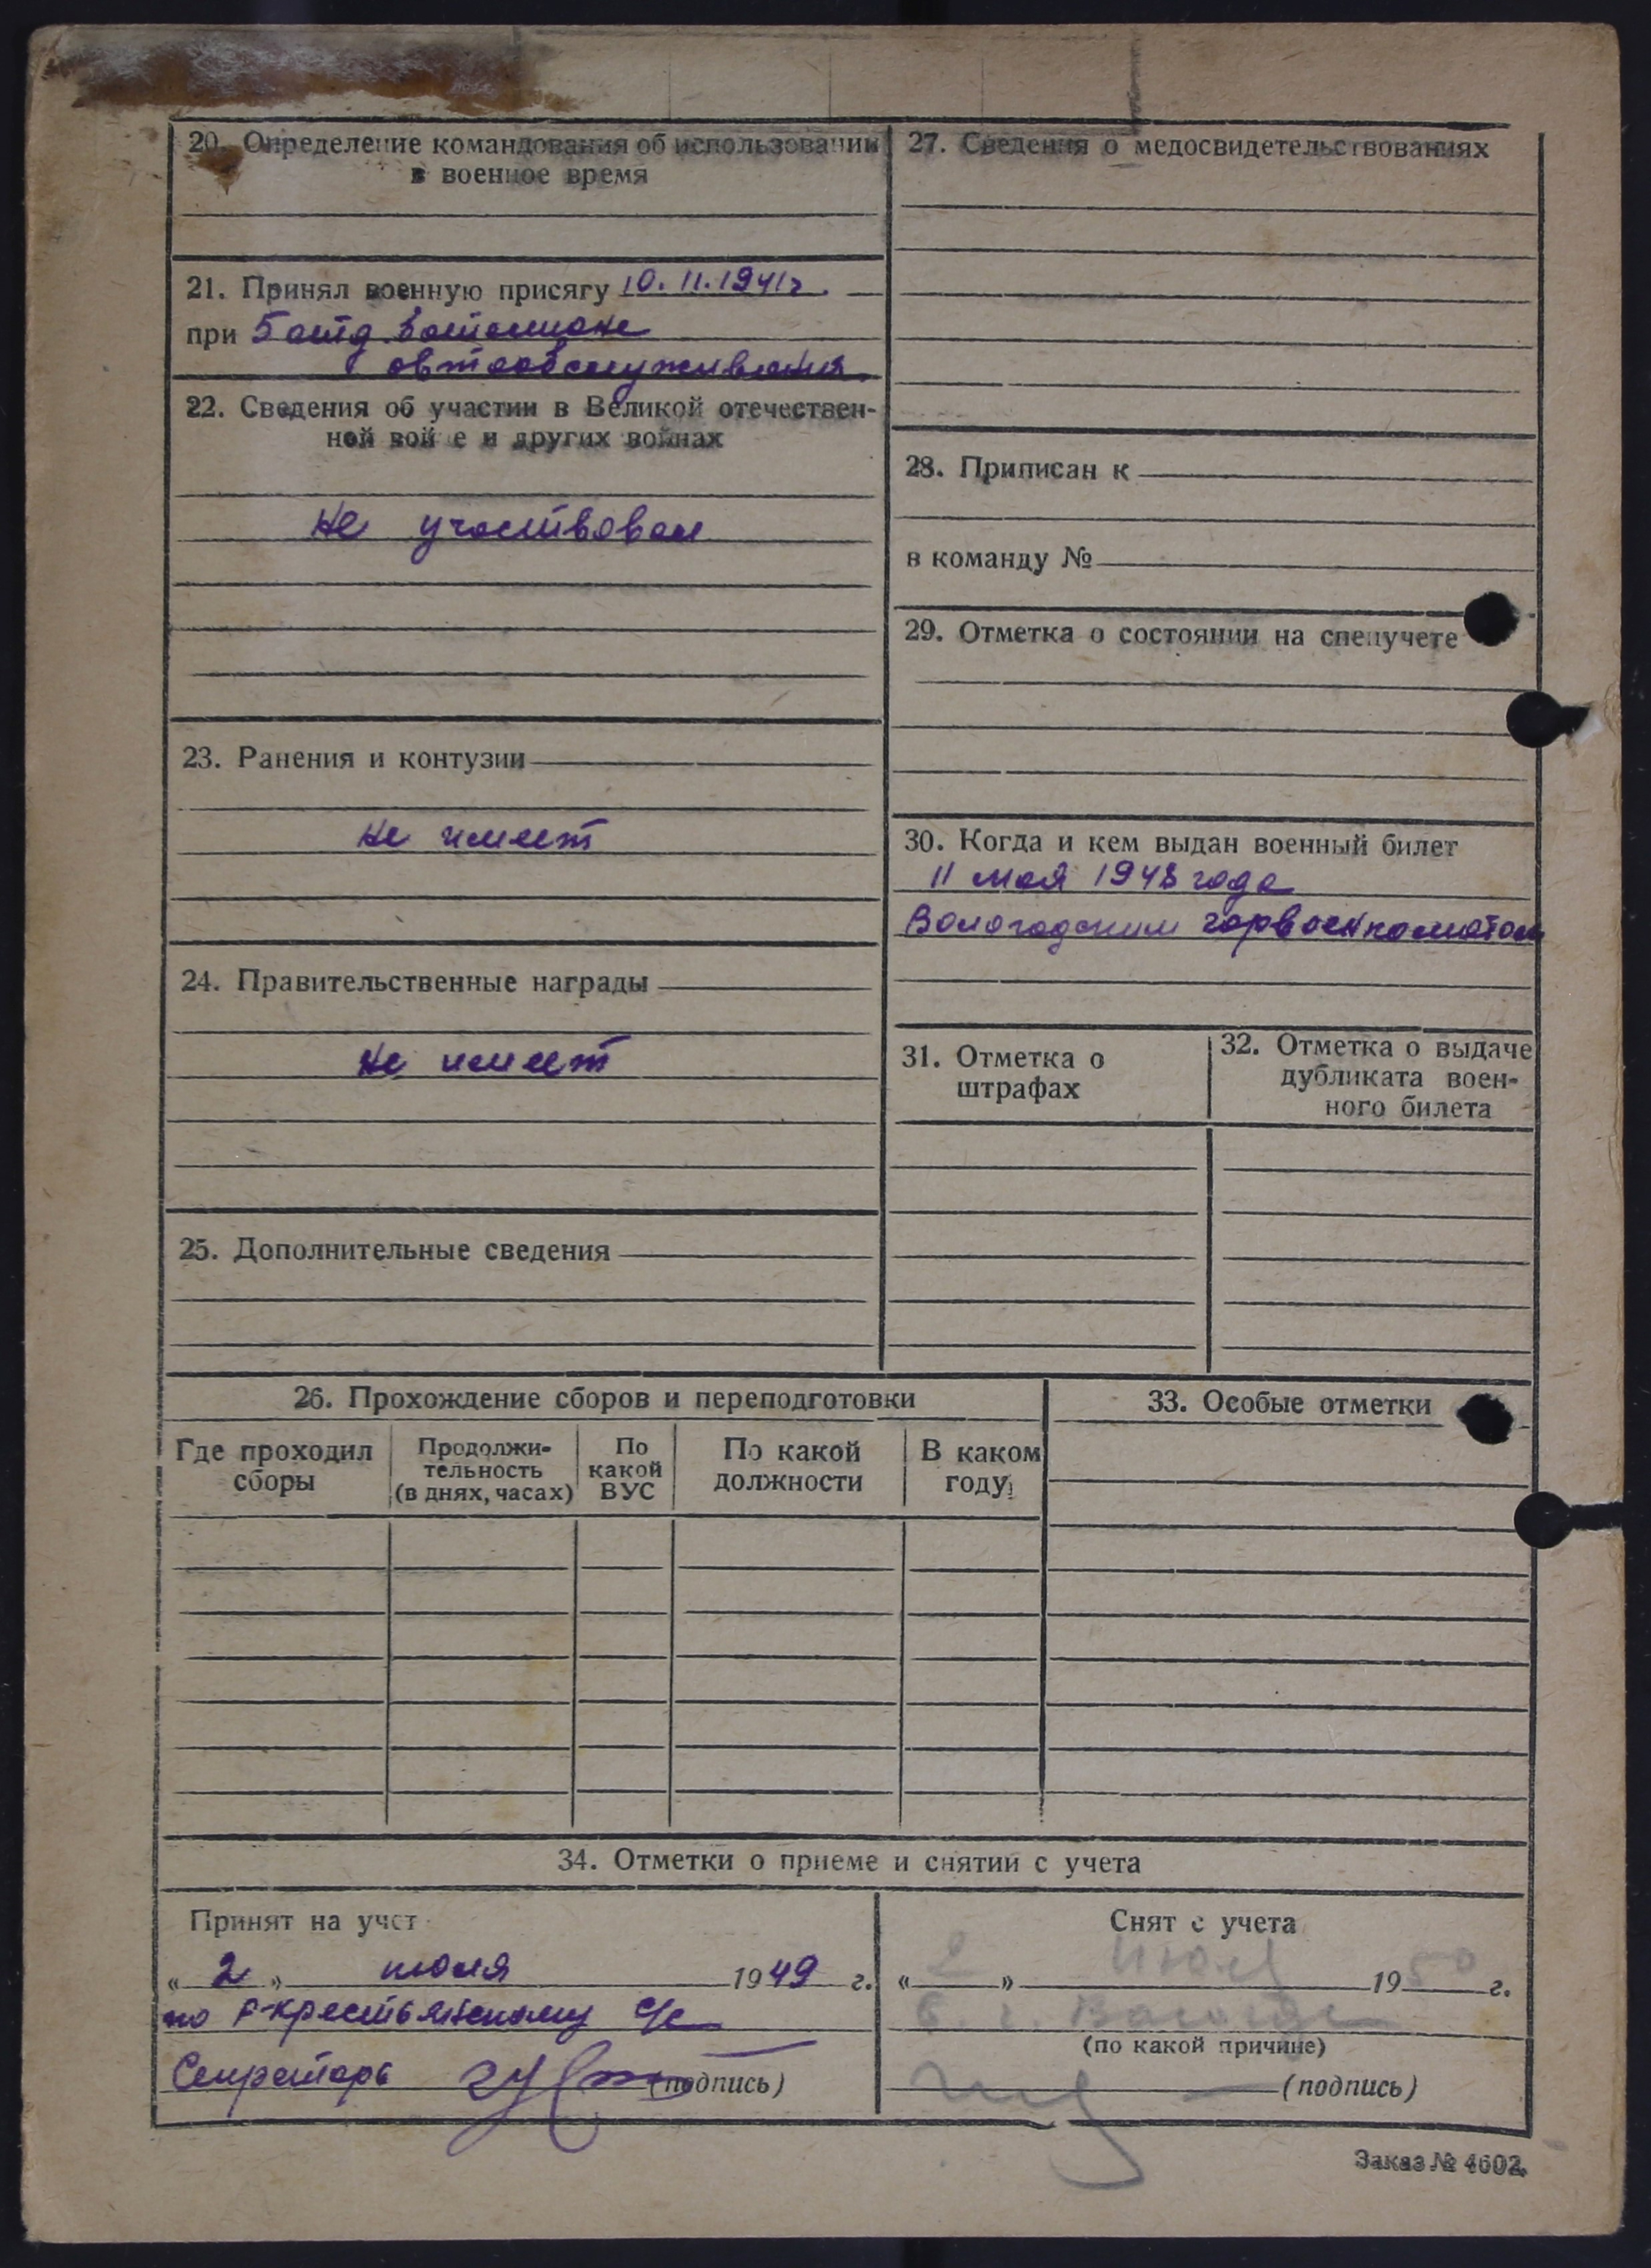 20. Определение командования об использовании
в военное время
21. Принял военную присягу 10.11.1941г.
при 5 отд. батальоне
автообслуживания.
22. Сведения об участии в Великой отечествен-
ной вой е и других войнах
Не участвовал
23. Ранения и контузии
Не имеет
24. Правительственные награды
Не имеет
25. Дополнительные сведения
27. Сведения о медосвидетельствованиях
28. Приписан к
в команду №
29. Отметка о состоянии на спецучете
30. Когда и кем выдан военный билет
11 мая 1948 года
Вологодским горвоенкоматом
31. Отметка о
штрафах
32. Отметка о выдаче
дубликата воен-
ного билета
26. Прохождение сборов и переподготовки
Где проходил
сборы
Продолжи-
тельность
(в днях, часах)
По
какой
ВУС
По какой
должности
В каком
году
33. Особые отметки
34. Отметки о приеме и снятии с учета
Принят на учет
« 2 » июля 1949 г.
по Р-Крестьянскому с/с
Секретарь (подпись)
Снят с учета
« 2 » июл 1950 г.
В г. Вологда
(по какой причине)
(подпись)
Заказ № 4602.